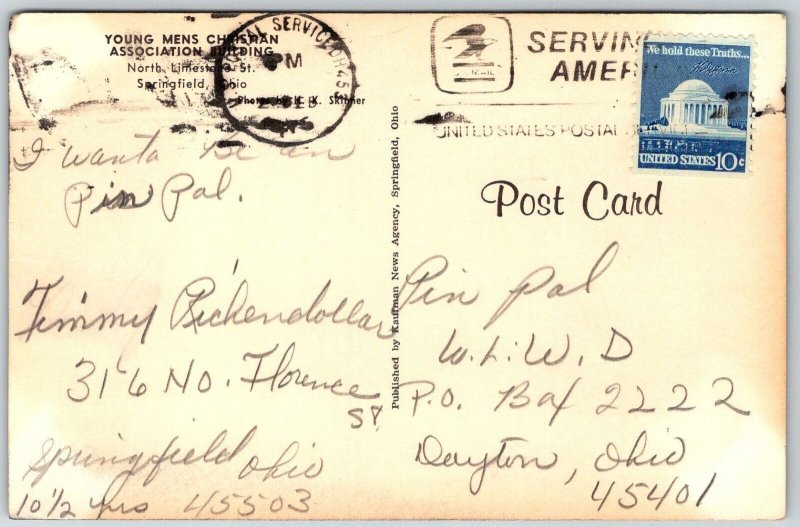 YOUNG MENS CHRISTIAN
ASSOCIATION BUILDING
North Limestone St.
Springfield, Ohio
Photos by K. K. Skinner
SERVICE OH 453
PM
FEB
U.S.MAIL
SERVING
AMER
UNITED STATES POSTAL SE
We hold these Truths...
UNITED STATES 10c
Post Card
Published by Kaufman News Agency, Springfield, Ohio
I wanta be an
Pin Pal.
Timmy Richendollar
316 No. Florence
St
Springfield Ohio
10 1/2 yrs 45503
Pin Pal
W.L.W.D
P.O. Box 2222
Dayton, Ohio
45401